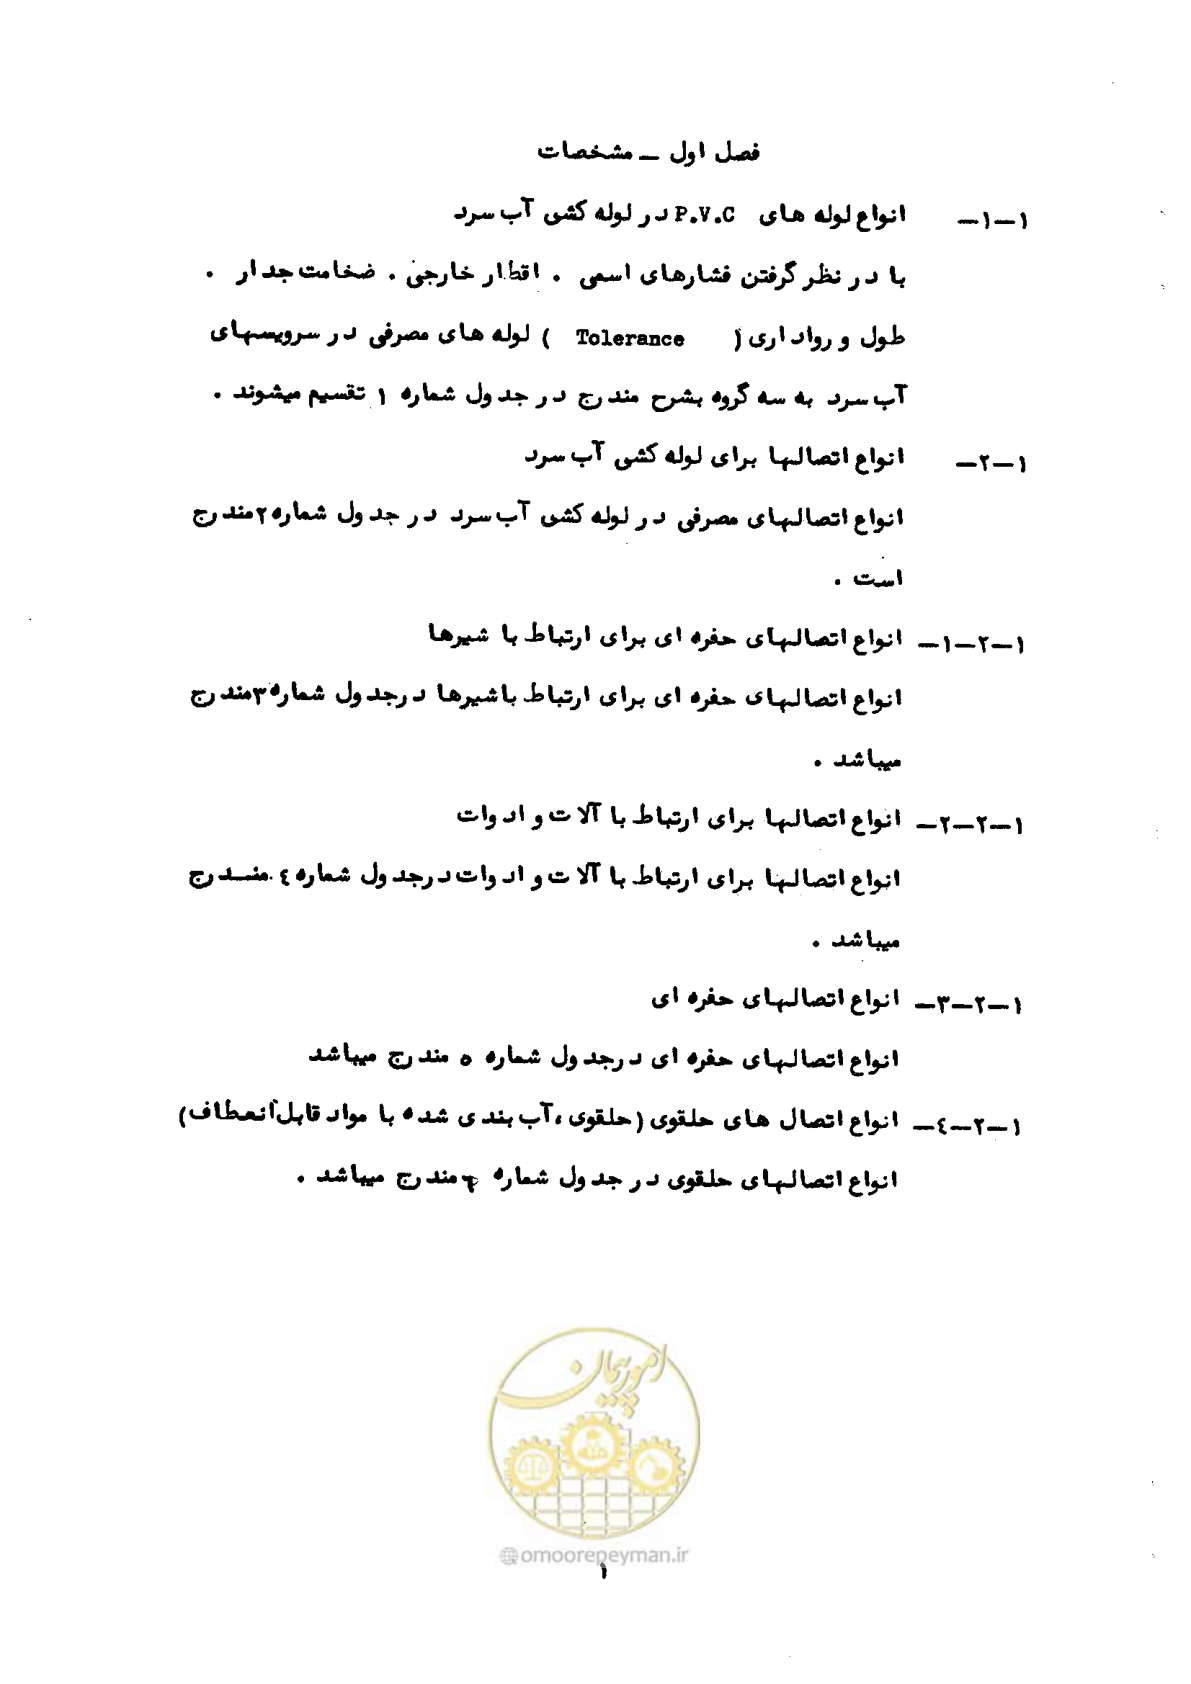 فصل اول ــ مشخصات
۱ــ۱ــ انواع لوله های P.V.C در لوله کشی آب سرد
با در نظر گرفتن فشارهای اسمی . اقطار خارجی . ضخامت جدار .
طول و رواداری ( Tolerance ) لوله های مصرفی در سرویسهای
آب سرد به سه گروه بشرح مندرج در جدول شماره ۱ تقسیم میشوند .
۱ــ۲ــ انواع اتصالها برای لوله کشی آب سرد
انواع اتصالهای مصرفی در لوله کشی آب سرد در جدول شماره ۲ مندرج
است .
۱ــ۲ــ۱ــ انواع اتصالهای حفره ای برای ارتباط با شیرها
انواع اتصالهای حفره ای برای ارتباط با شیرها در جدول شماره ۳ مندرج
میباشد .
۱ــ۲ــ۲ــ انواع اتصالها برای ارتباط با آلات و ادوات
انواع اتصالها برای ارتباط با آلات و ادوات در جدول شماره ٤ منـدرج
میباشد .
۱ــ۲ــ۳ــ انواع اتصالهای حفره ای
انواع اتصالهای حفره ای در جدول شماره ٥ مندرج میباشد
۱ــ۲ــ٤ــ انواع اتصال های حلقوی (حلقوی ، آب بندی شده با مواد قابل انعطاف)
انواع اتصالهای حلقوی در جدول شماره ۶ مندرج میباشد .
امور پیمان
@omoorepeyman.ir
۱